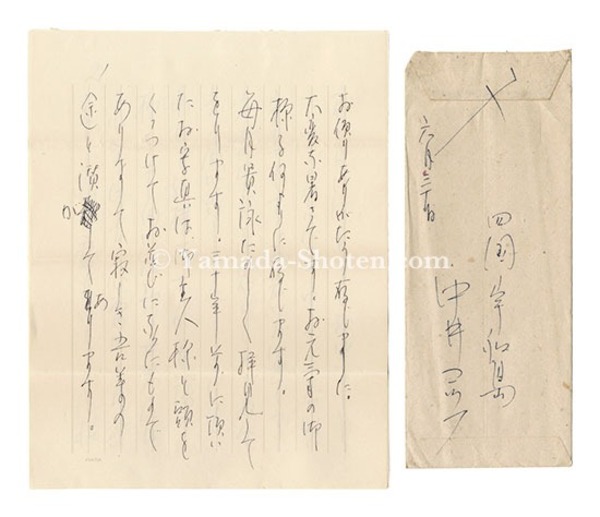 お便りありがたう存じました。
大変な暑さです。お元気の御
様子何よりに存じます。
毎月貴詠たのしく拝見して
をります。三十年前に頂い
たお写真は御主人様と頭を
くつつけてお並びになつたもので
ありまして寂しき吾等の
途を して あります。
六月三十日
四国宇和島
中井コッフ
© Yamada-Shoten.com